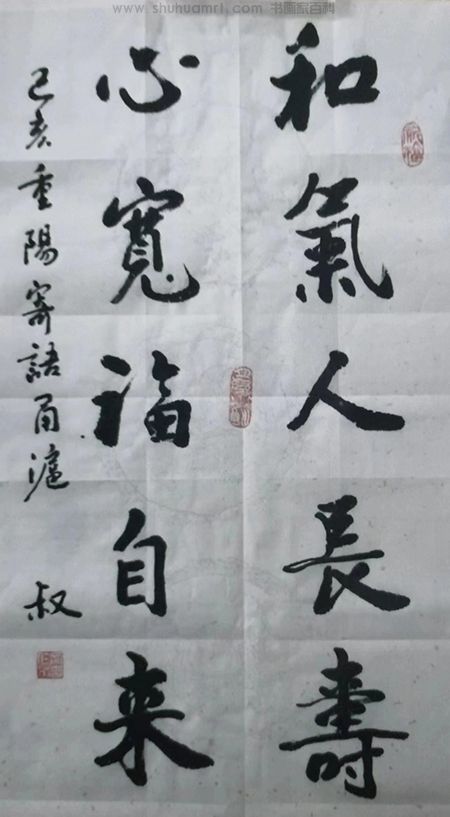 www.shuhuamrl.com 书画家百科
和氣人長壽
心寬福自来
己亥重陽寄語甬滬 叔